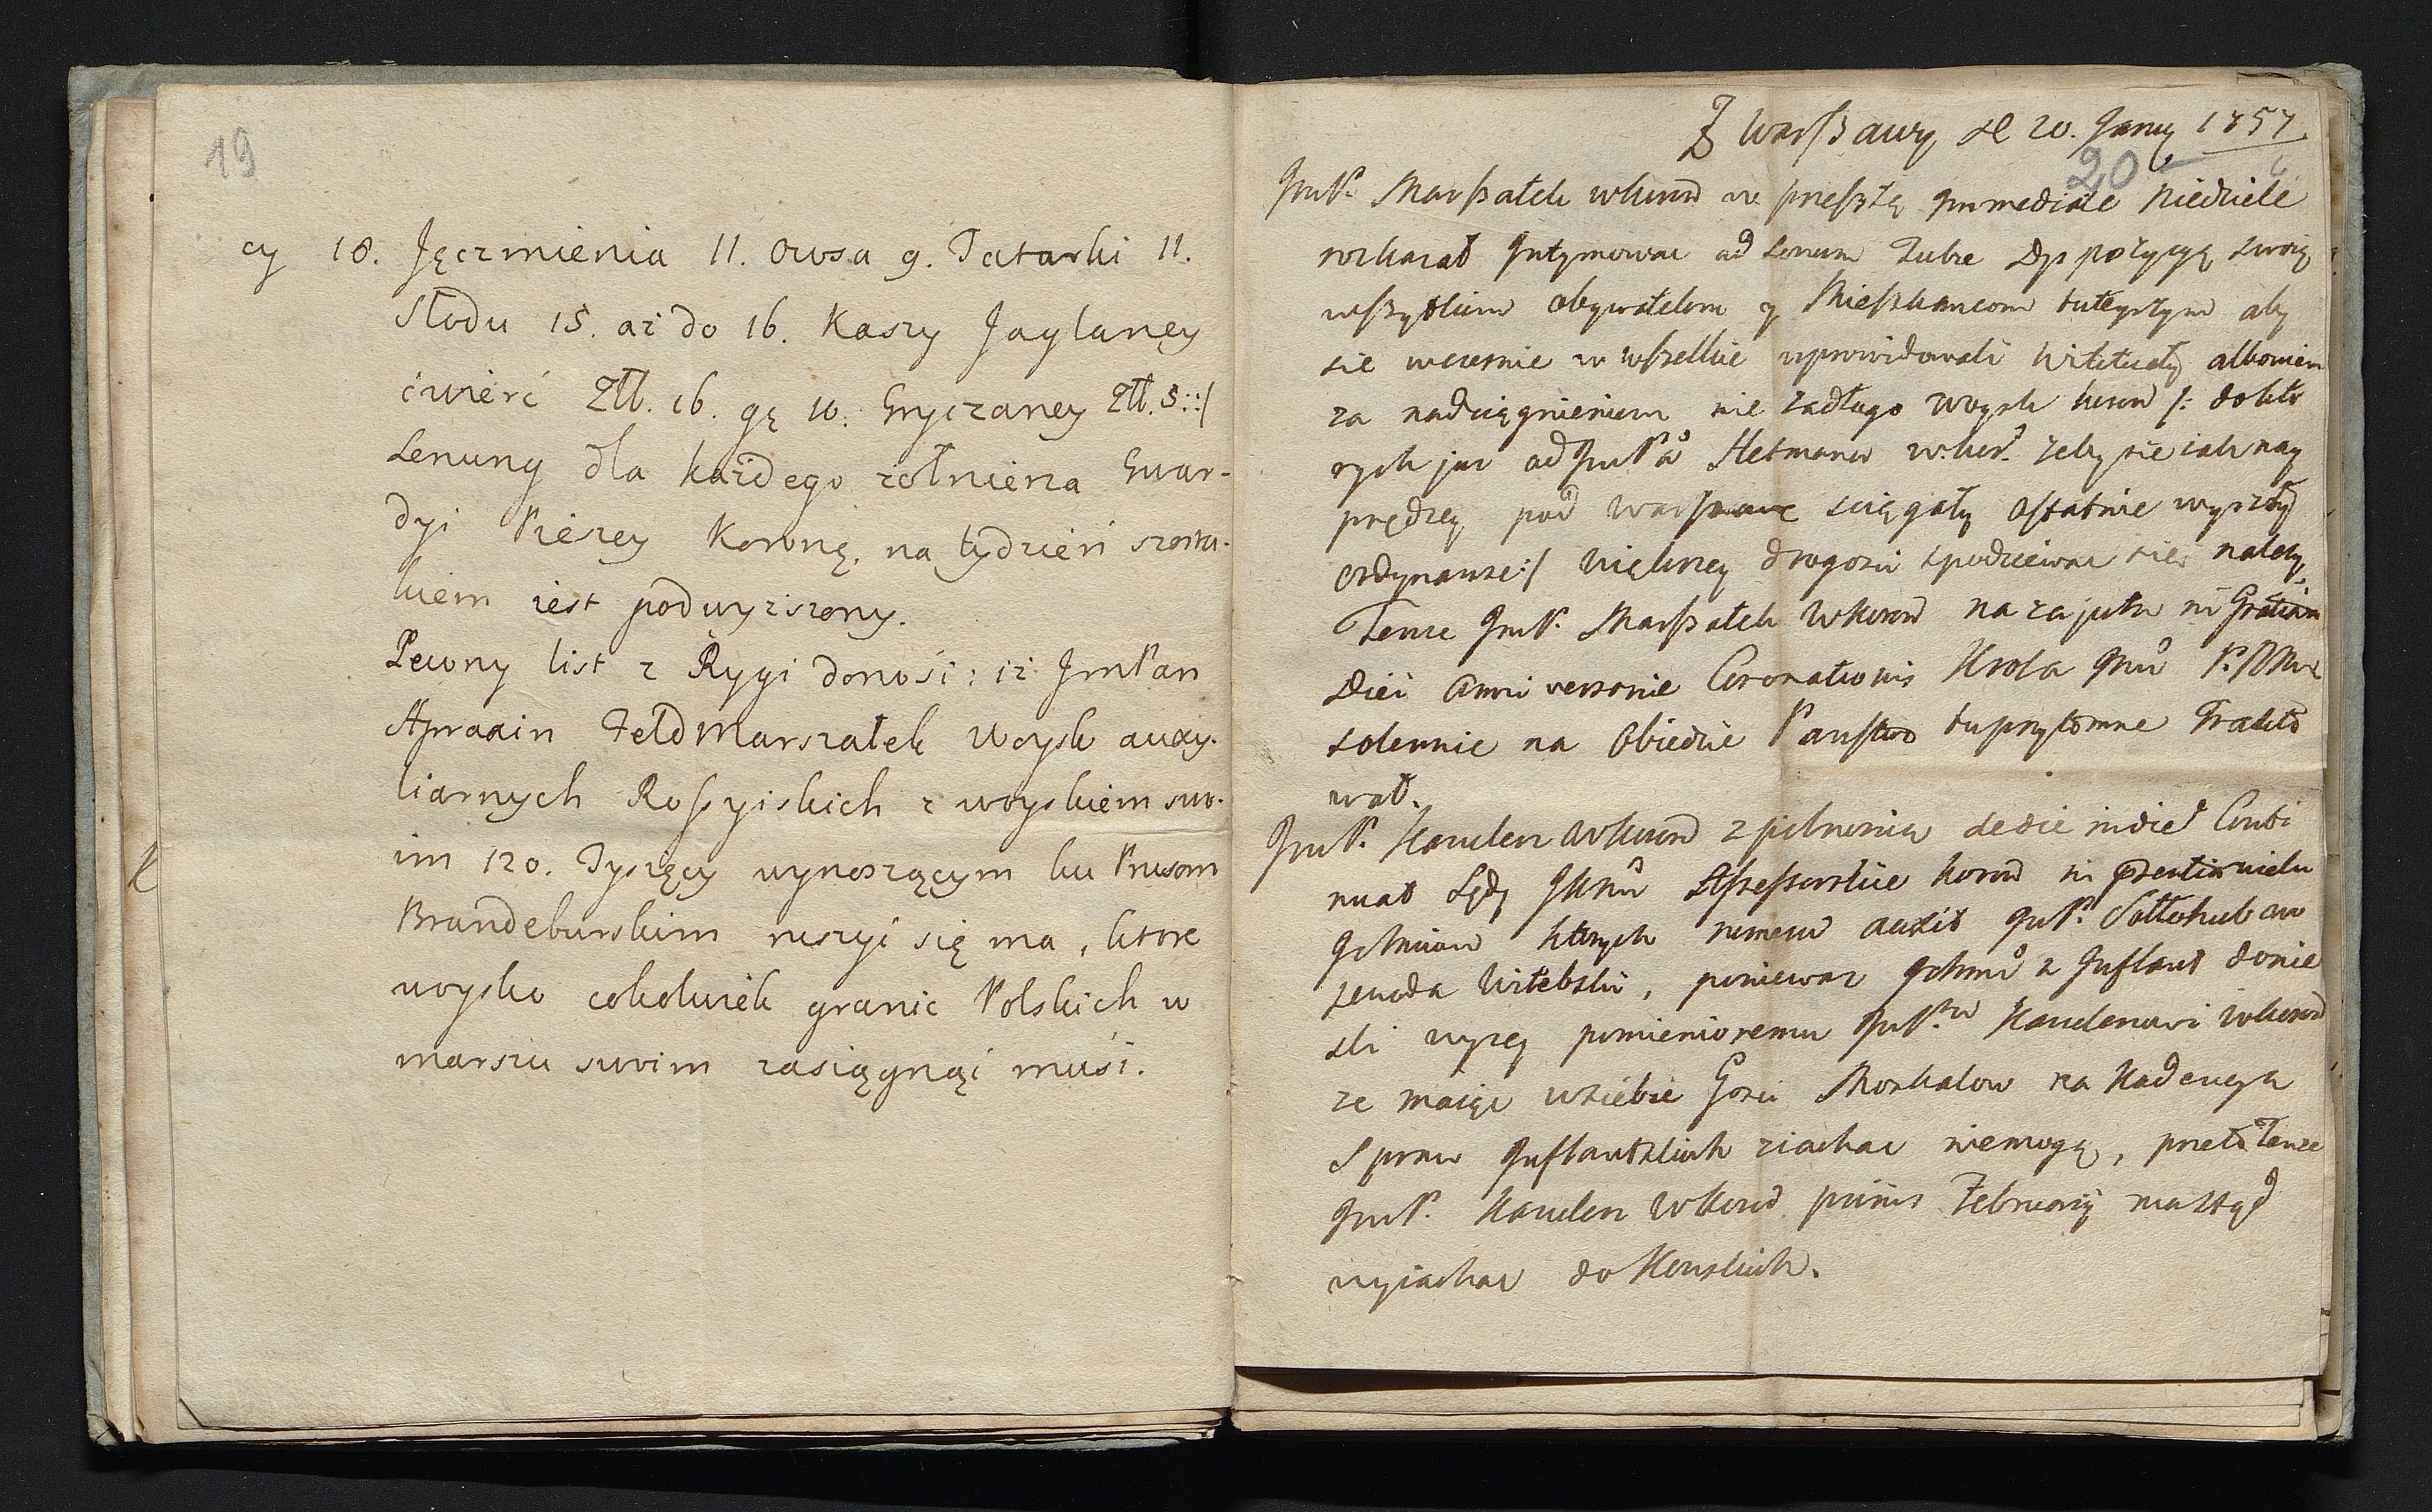 19
cy 18. Jęczmienia 11. Owsa 9. Tatarki 11.
Słodu 15. aż do 16. Kaszy Jaglaney
ćwierć Złł. 16. gę 10. Gryczaney Złł. 8::/
Lenung dla każdego żołnierza Gwar-
dyi Pieszey Koronnę, na tydzień szosta-
kiem iest podwyższony.
Pewny list z Rygi donośi: iż JmPan
Apraxin FeldMarszałek Woysk auxy-
liarnych Roßyiskich z woyskiem swo-
im 120. Tysięcy wynoszącym ku Prusom
Brandeburskim ruszyć się ma, ktore
woysko cokolwiek granic Polskich w
marszu swoim zasiągnąć muśi.
Z Warßawy d 20. Janry 1757.
20
JmP. Marßałek wkoron w przeßłą immediate Niedziele
rozkazał Intymować ad sonum Tubae Dyspozycyą swoię
wßzytkim obywatelom y Mießkancom tuteyszym aby
sie wczesnie w wßelkie uprowidowali wiktuały albowiem
za nadciągnieniem nie zadługo Woysk koron /: do kto
rych już od JmPa Hetmana w.kor. żeby sie iak nay
prędzey pod Warßawe sciągały ostatnie wyszły
Ordynanse:/ większey drogosci spodziewac sie należy,
Tenże JmP. Marßałek WKoron na zajutrz in Gratiam
Diei Anniversarie Coronationis Krola Jmci P. N. M.
solennie na Obiedzie Panstwo tu przytomne Trakto
wał.
JmP. Kanclerz Wkoron z pilnoscia de die in diem Conti
nuat Sądy JKMci Aßeßorskie koron in praesentia wielu
Ichmciow ktorych numerum auxit JmP. Sołłohub Wo
jewoda Witebski, ponieważ Ichmć z Inflant donie
sli wyzey pomienionemu JmP. Kanclerzowi wkoron
ze maiąc u siebie Gosci Moskalow na Kadencyą
Spraw Inflantskich ziachac niemogą, przeto tenże
JmP. Kanclerz WKoron primis Februarij ma ztąd
wyiachac do Konskich.